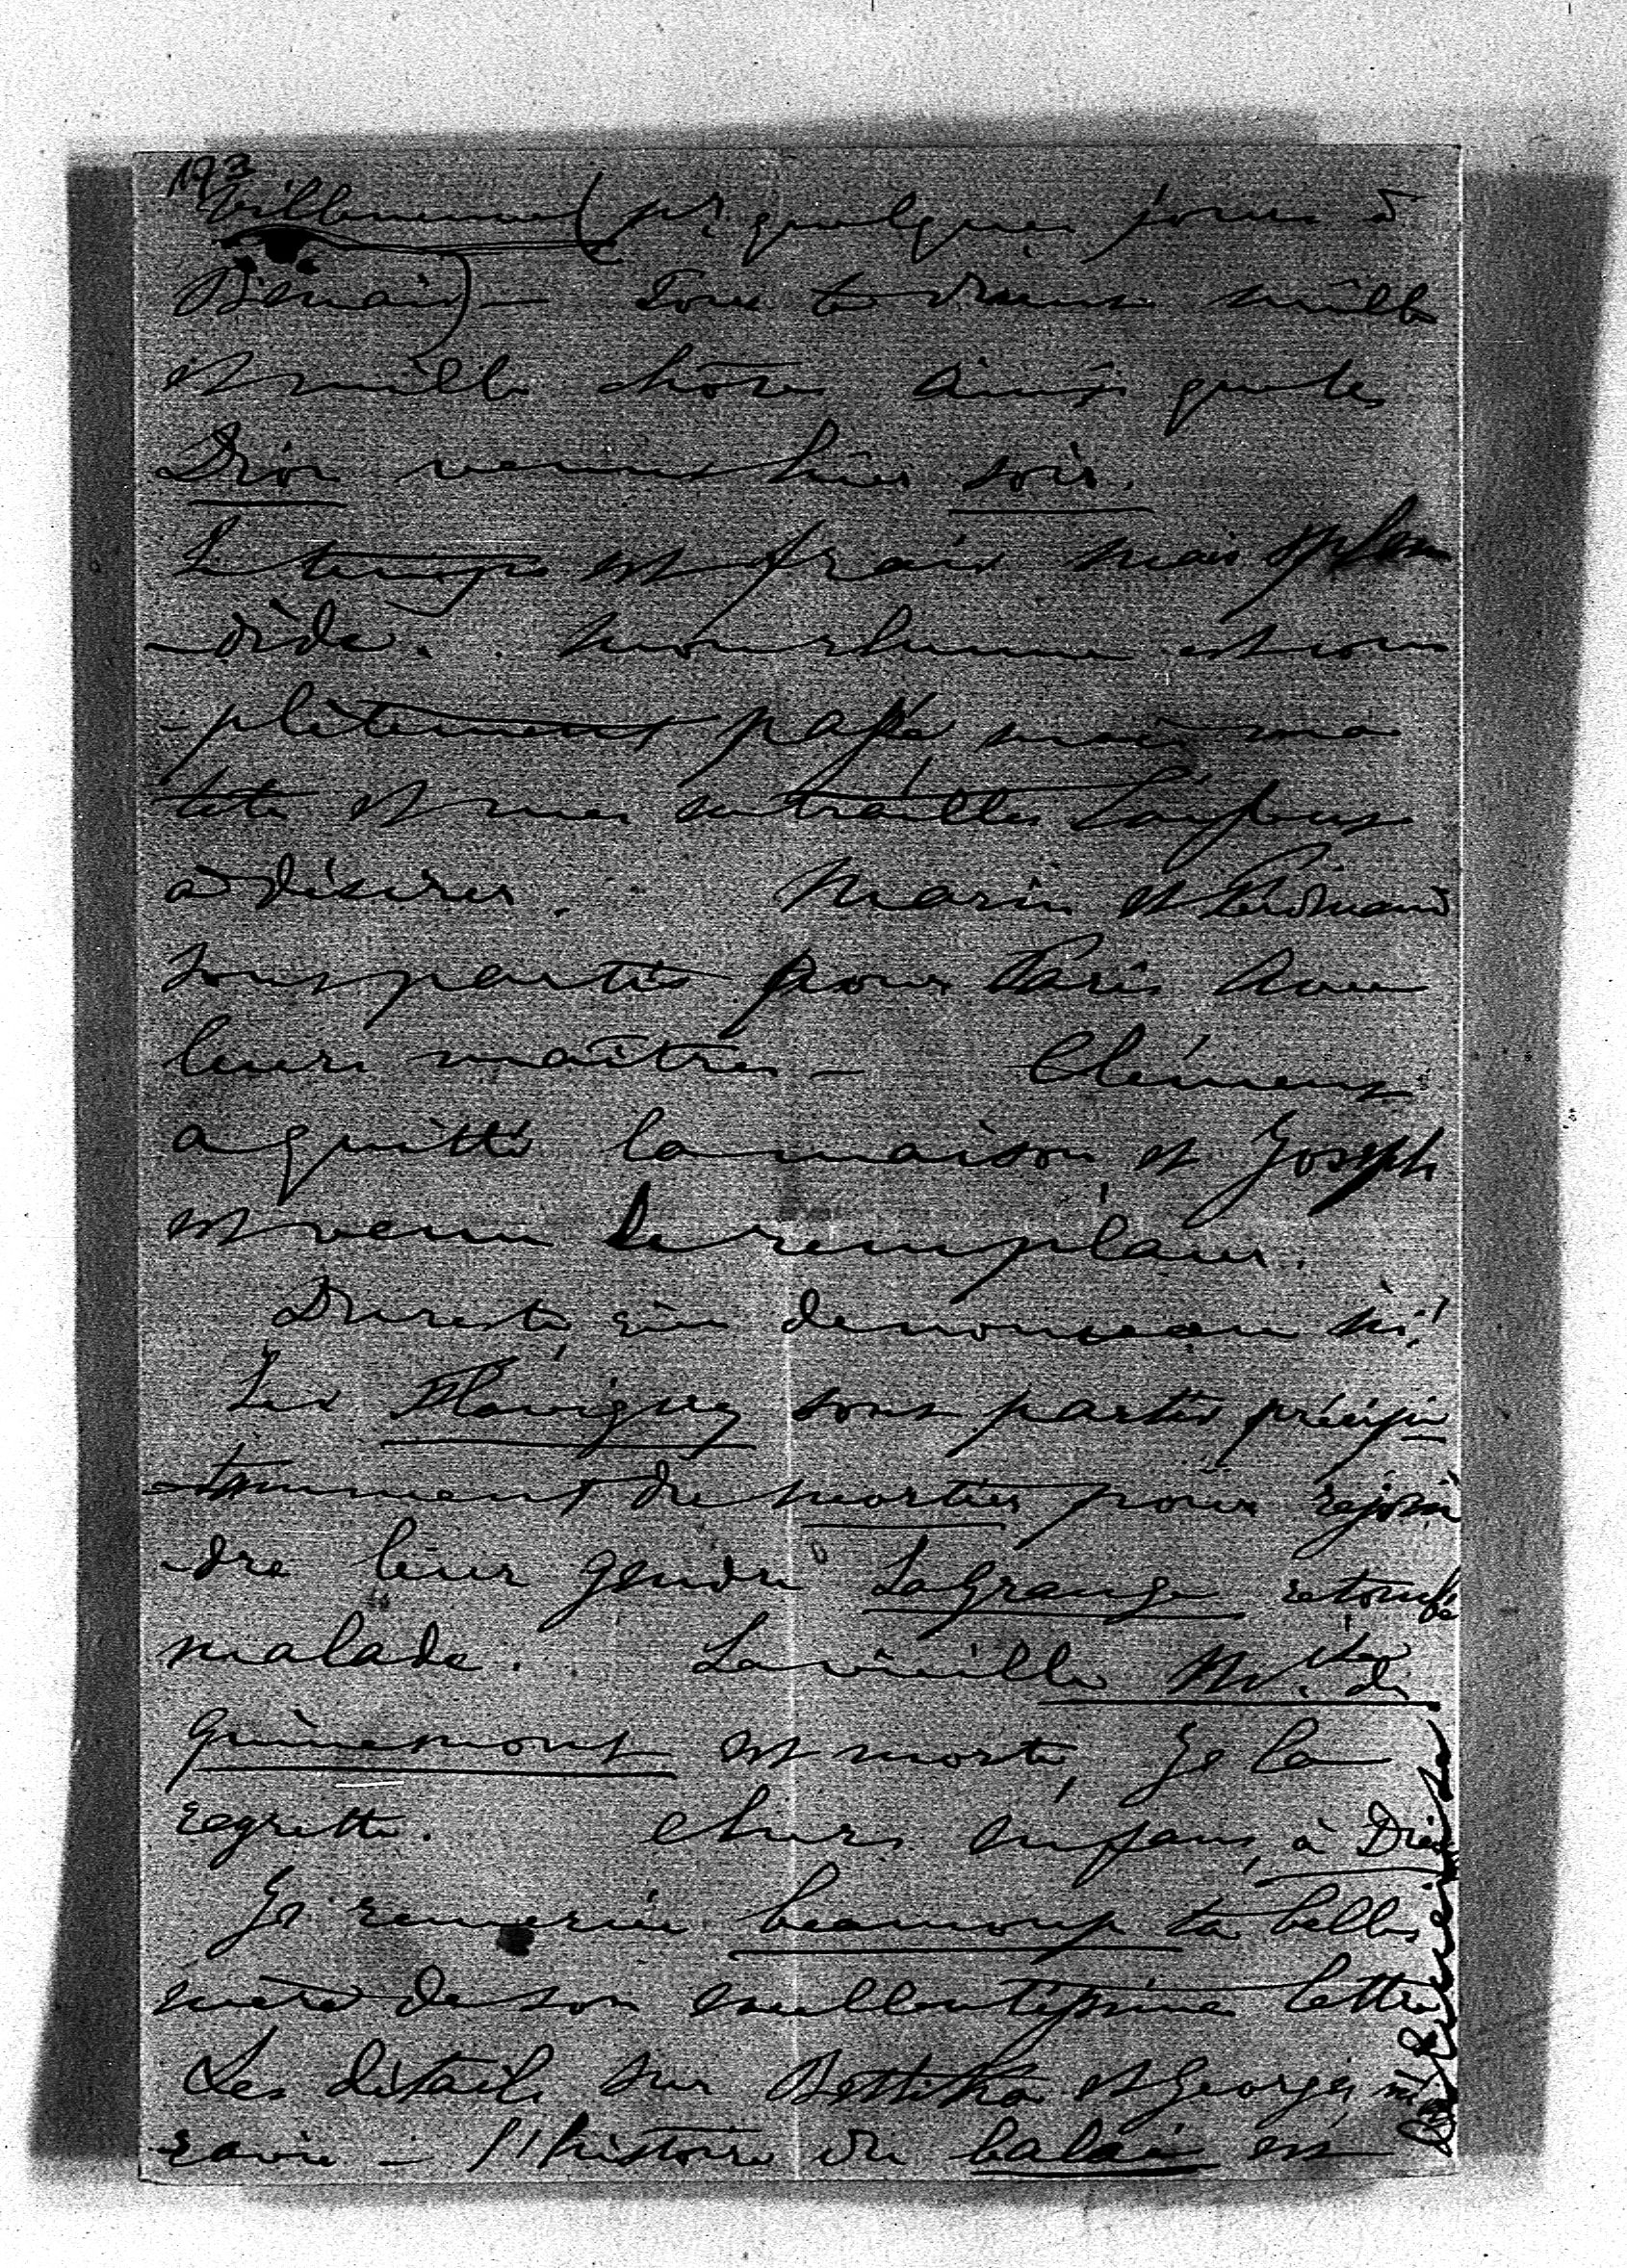 173
Villeneuve (pr quelques jours à
Dinain) — Tous te disent mille
et mille choses ainsi que les
Drion venus hier soir.
Le temps est frais mais splen
-dide. Mon rhume est com
-plètement passé mais ma
tête et mes entrailles laissent
à désirer. Marie et Ferdinand
sont partis pour Paris avec
leurs maîtres — Clément
a quitté la maison et Joseph
est venu le remplacer.
Du reste, rien de nouveau ici!
Les Flavigny sont partis précipi
-tamment du Mortier pour rejoin
-dre leur gendre Lagrange retombé
malade. La vieille Mise de
Quinemont est morte, Je la
regrette. Chers enfans, à Dieu
Je remercie beaucoup ta belle
mère de son excellentissime lettre
Les détails sur Bettika et Georges m'
ravie — l'histoire du balai est